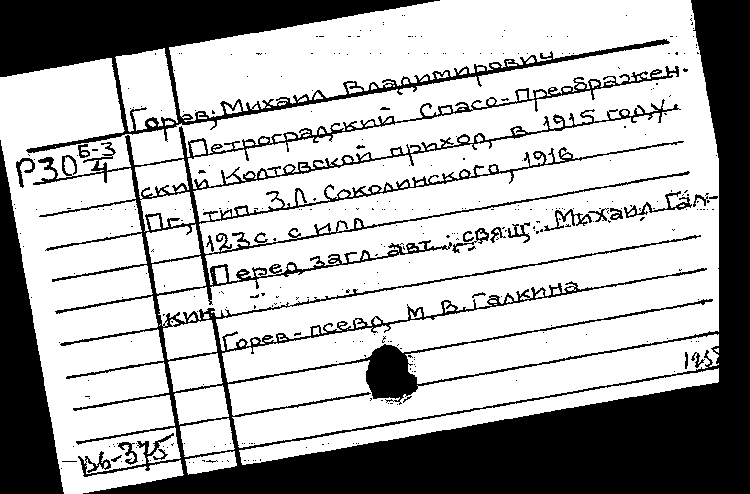 Горев, Михаил Владимирович
Р30 Б-3/4
Петроградский Спасо-Преображен-
ский Колтовской приход, в 1915 году.
Пг., тип. З.Л. Соколинского, 1916
123 с. с илл.
Перед загл. авт.: свящ. Михаил Гал-
кин
Горев-псевд. М.В. Галкина
В6-375